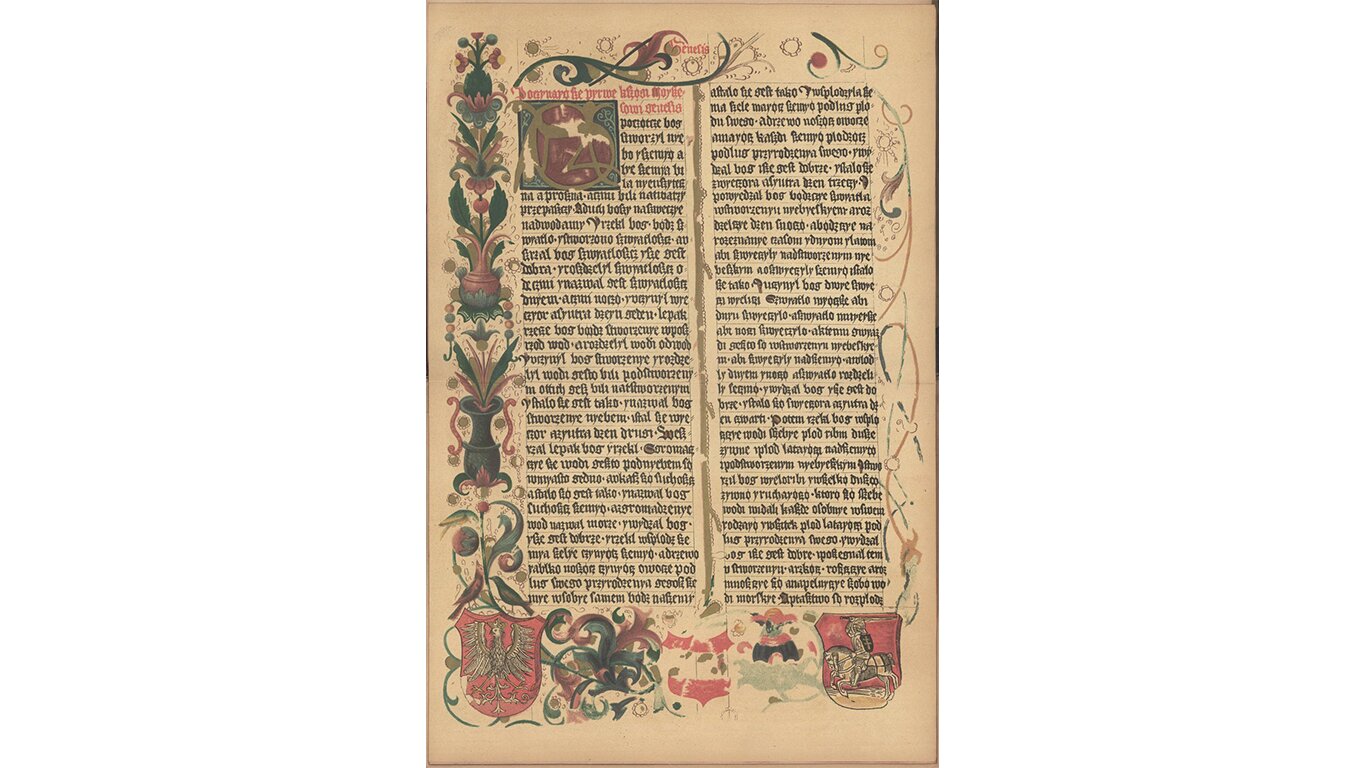 Genesis
Poczynayø sze pyrwe kszøgi Moysze-
szowi genesis
poczøtcze bog
stworzyl nye
bo yszemyø a
lye szemya bi
la nyeuszytcz
na a prozna· aczmi bili nathwarzy
przepasczy· Aduch boszy naswecye
nadwodamy Yrzekl bog· bødz sz
wyatlo· ystworzono szwyatloszcz· aw
szrzal bog szwyatloszcz ysze gest
dobra· yroszdzelyl szwyatloszcz o
deczmi ynazwal gest szwyatloszcz
dnyem· aczmi noczø· yvczynyl wye
czor azyutra dzeyn geden· lepak
rzecze bog bødz stworzenye wposz
rzod wod· arozdzelyl wodi odwod
Yvczynyl bog stworzenye yrozdze
lyl wodi gesto bili podstworzeny
m ottich gesz bili natstworzenym
Ystalo sze gest tako· ynazwal bog
stworzenye nyebem· istal sze wye
czor azyutra dzen drugi· Wesz
rzal lepak bog yrzekl· Sgromacz
czye sze wodi gesto podnyebem sø
wmyasto gedno· aukasz szø suchoszcz
astalo szø gest tako· ynazwal bog
suchoszcz szemyø· azgromadzenye
wod nazwal morze· ywydzal bog·
ysze gest dobrze· yrzekl wsplodz sze
mya szelye czynyøcz szemyø· adrzewo
yablko noszøcz czynyøcz owocze pod
lug swego przyrodzenya gegosz sze
mye wsobye samem bødz naszemy
astalo sze gest tako Ywsplodzyla sze
ma szele mayøcz szemyø podlug plo
du swego· adrzewo noszøcz owocze
amayøcz kaszdi szemyø plodzøcz
podlug przyrodzenya swego· ywy
dzal bog isze gest dobrze· ystalo sze
zwyeczora asyutra dzen trzeczy· Y
powyedzal bog bødzcye szwyatla
wstworzenyu nyebyeskyem aroz
dzelcye dzen snoczø· abødzcye na
rozeznanye czasom ydnyom ylatom
abi szwyeczyly nadstworzenym nye
beskym aoszwyeczyly szemyø istalo
sze tako Yuczynyl bog dwye szwye
czi wyelizi· Szwyatlo wyøcsze abi
dnyu szwyeczylo· aszwyatlo mnyeysze
abi noczi szwyeczylo· aktemu gwyaz
di gesto so wstworzenyu nyebeskye
m· abi szwyeczyly nadszemyø· awlod
ly dnyem ynoczø aszwyatlo rozdzeli
ly sczmø· ywydzal bog ysze gest do
brze· ystalo szø szwyeczora azyutra dz
en czwarti· Potem rzekl bog wsplo
dzcye wodi szebye plod ribni dusze
szywne yplod latayøczi nadszemyø
ypodstworzenym nyebyeskym Ystwo
rzil bog wyeloribi ywszelkø duszø
szywnø yruchayøczø· ktorø szø szebe
wodi widali kaszde osobnye wswem
rodzayu ywszitek plod latayøczi pod
lug przyrodzenya swego· ywydzal
bog isze gest dobrze· iposzegnal tem
v stworzenyu· arzkøcz· roszczcye arøcz
mnoszcye szø anapelnycye szobø wo
di morskye· Aptastwo sø rozplodz